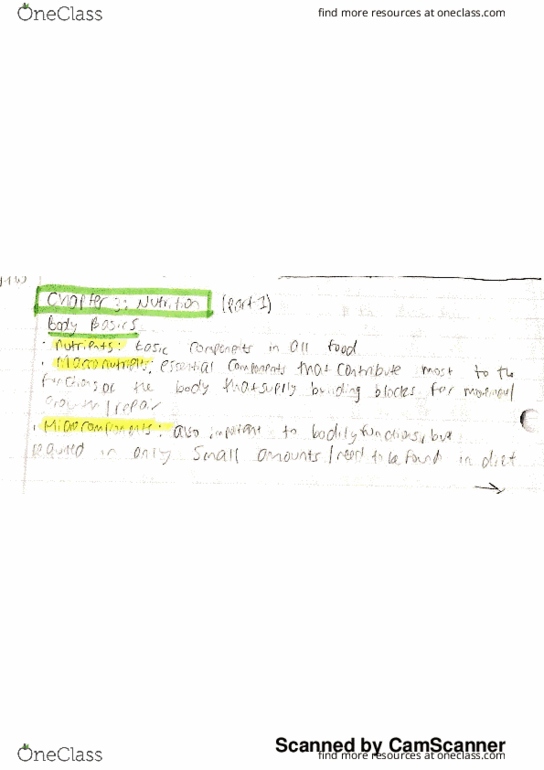 OneClass
find more resources at oneclass.com
Chapter 3: Nutrition (part 1)
Body Basics
· Nutrients: basic components in all food
· Macronutrients: essential components that contribute most to the
functions of the body that supply building blocks for movement/
growth/repair
· Microcomponents: also important to bodily functions, but
required in only small amounts/need to be found in diet
→
Scanned by CamScanner
OneClass
find more resources at oneclass.com